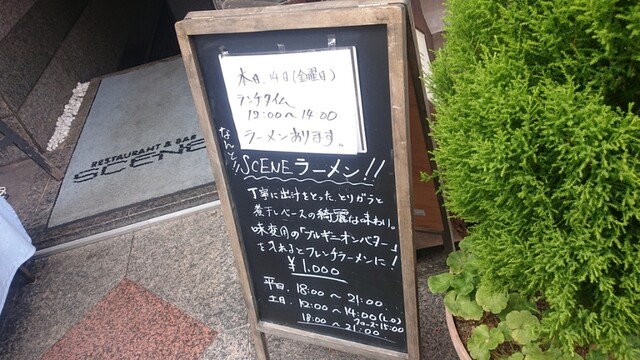 本日 4日(金曜日)
ランチタイム
12:00〜14:00
ラーメンあります。
なんと!!
SCENEラーメン!!
丁寧に出汁をとった、とりガラと
煮干しベースの綺麗な味わい。
味変用の「ブルギニオンバター」
を入れるとフレンチラーメンに!
¥1,000
平日. 18:00 〜 21:00
土日. 12:00 〜 14:00(L.O)
クローズ・15:00
18:00 〜 21:00
RESTAURANT & BAR
SCENE